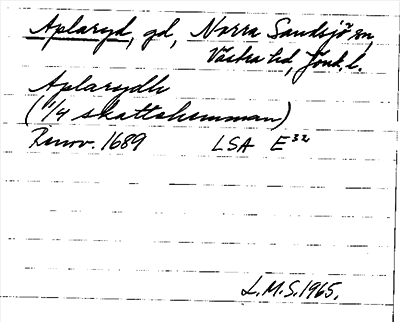 Aplaryd, gd, Norra Sandsjö sn,
Västra hd, Jönk. l.
Aplarydh
(1/4 skattehemman)
Renov. 1689 LSA E³²
L.M.S. 1965.